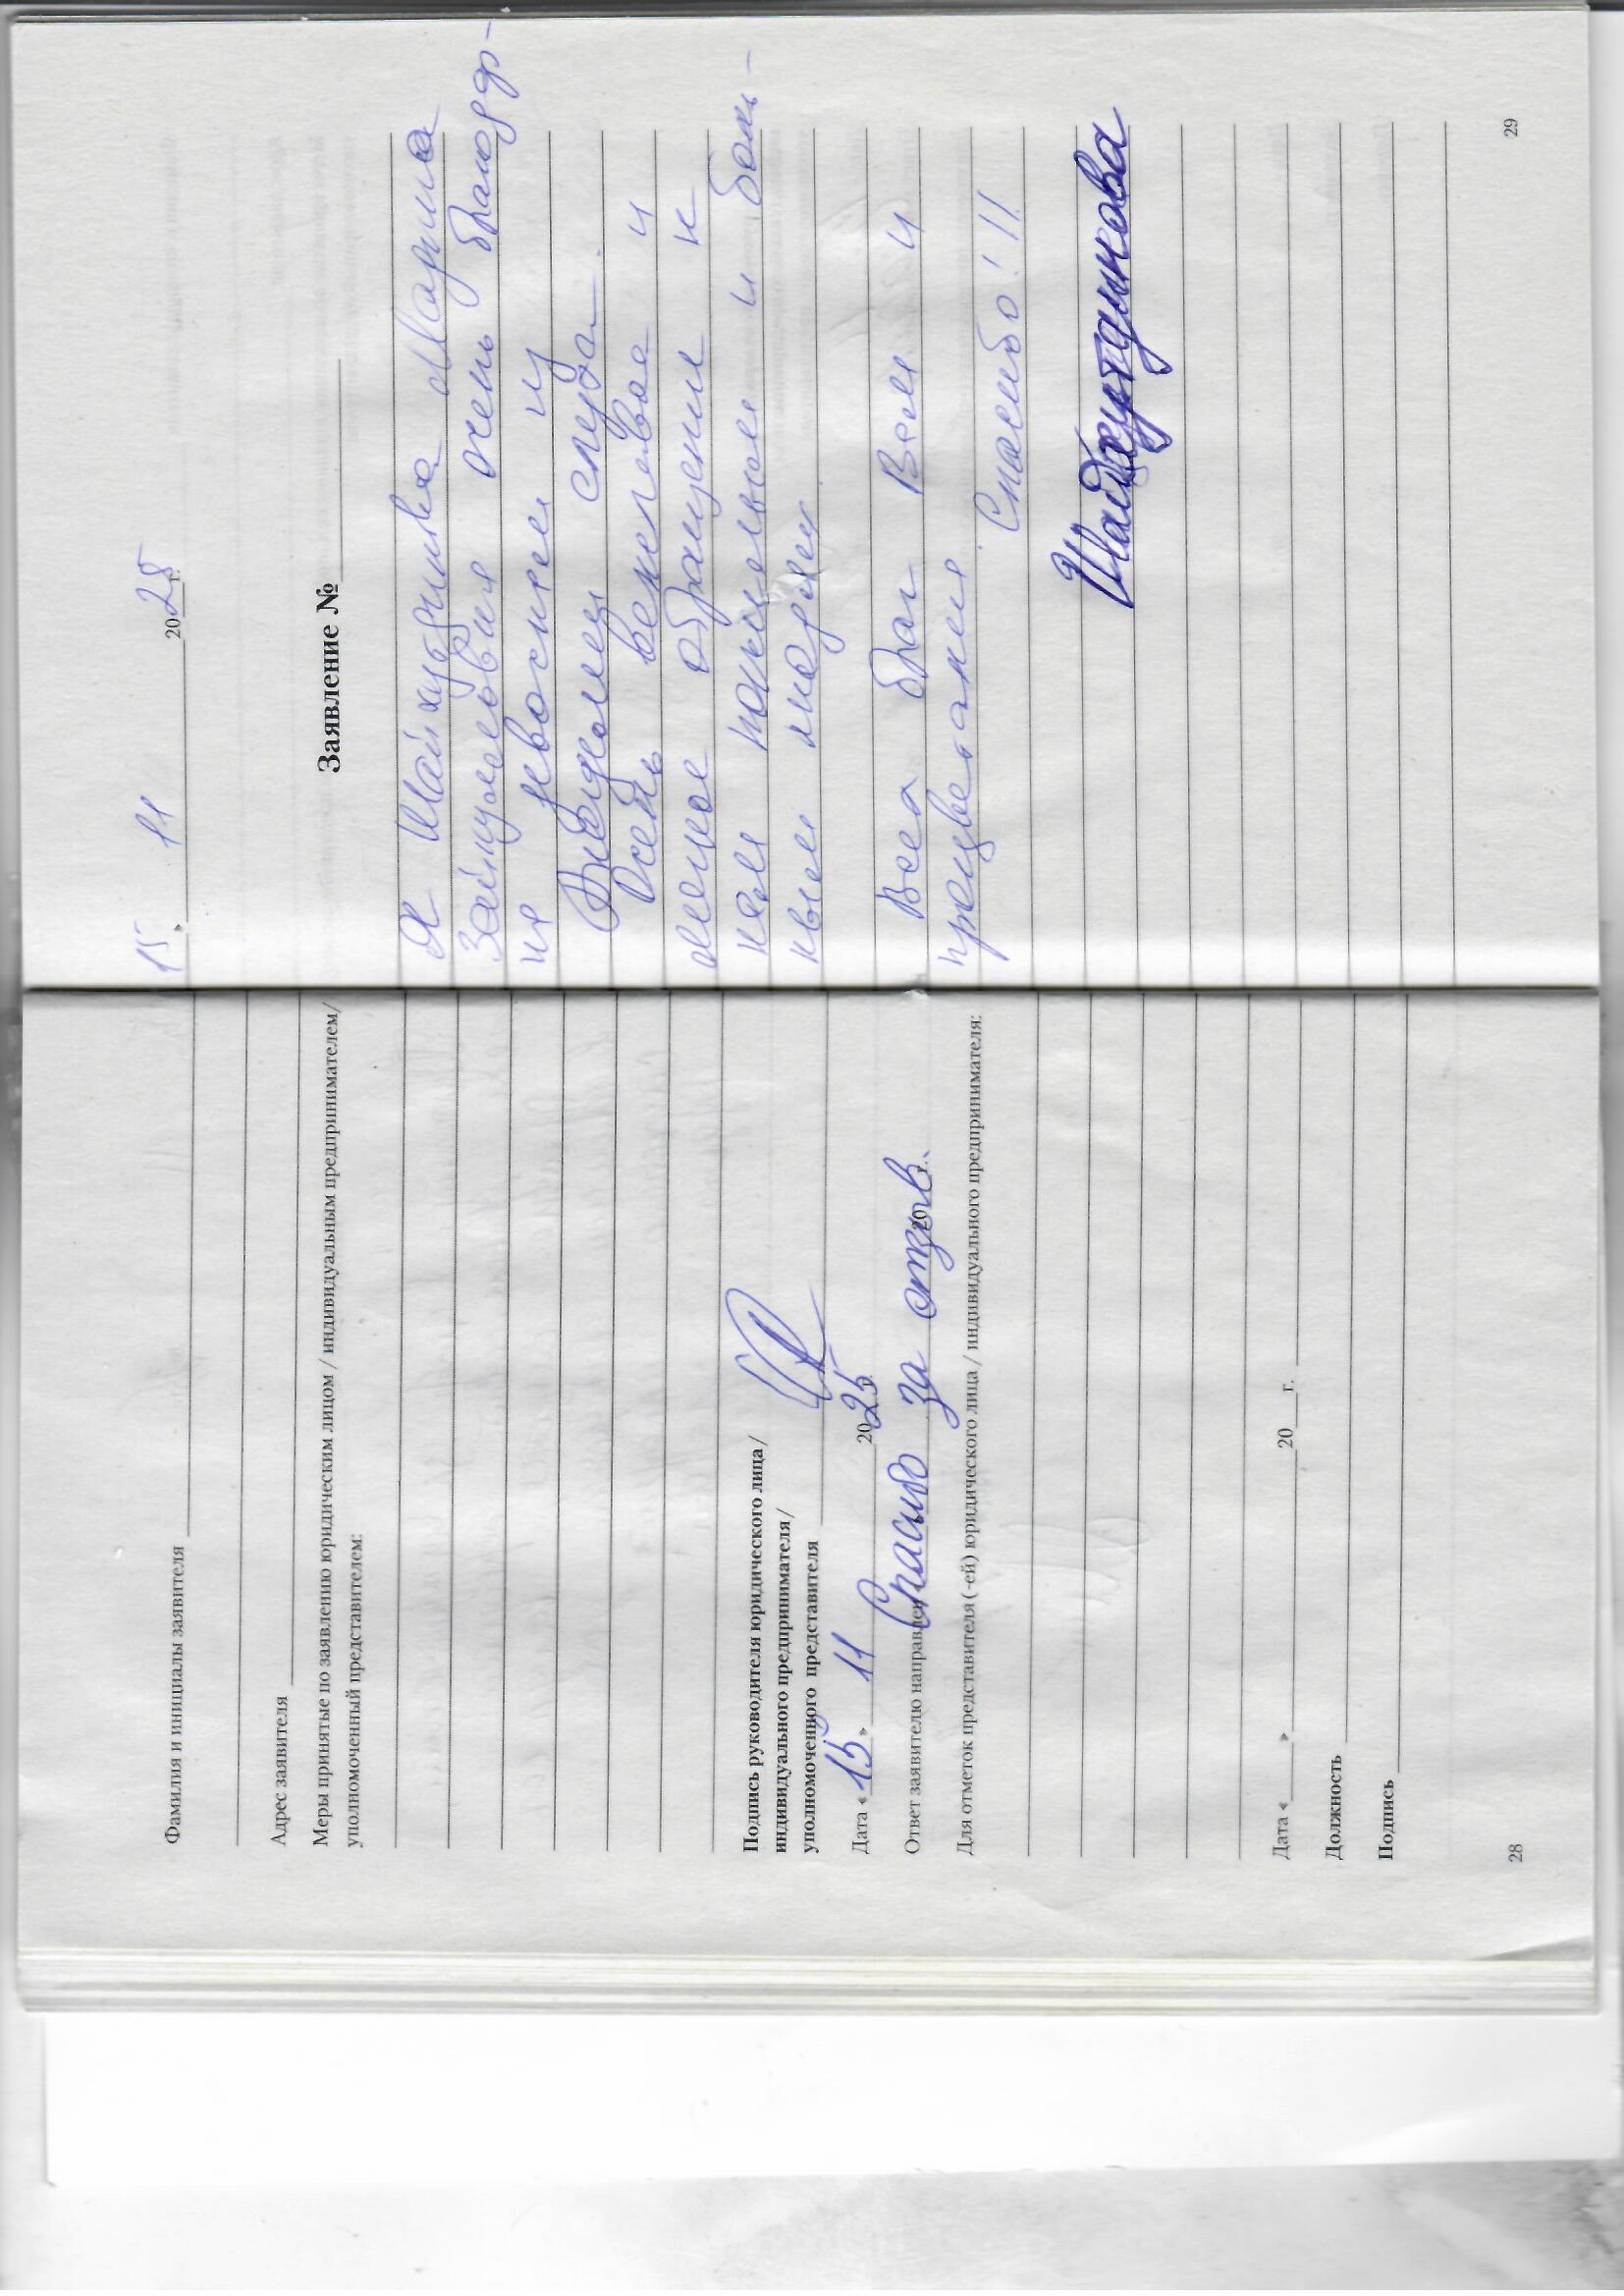 Фамилия и инициалы заявителя
Адрес заявителя
Меры принятые по заявлению юридическим лицом / индивидуальным предпринимателем/
уполномоченный представителем:
Подпись руководителя юридического лица/
индивидуального предпринимателя/
уполномоченного представителя
Дата «15» 11 2025
Ответ заявителю направлен Спасибо за отзыв. 20 г.
Для отметок представителя (-ей) юридического лица / индивидуального предпринимателя:
Дата « » 20 г.
Должность
Подпись
28
15 » 11 2025 г.
Заявление №
Я Марина
очень благодар-
на
скуда.
Осень вежливое и
обращение к
нам и боль-
ным людям.
Всех благ Вам и
процветания.
Спасибо!!!
29